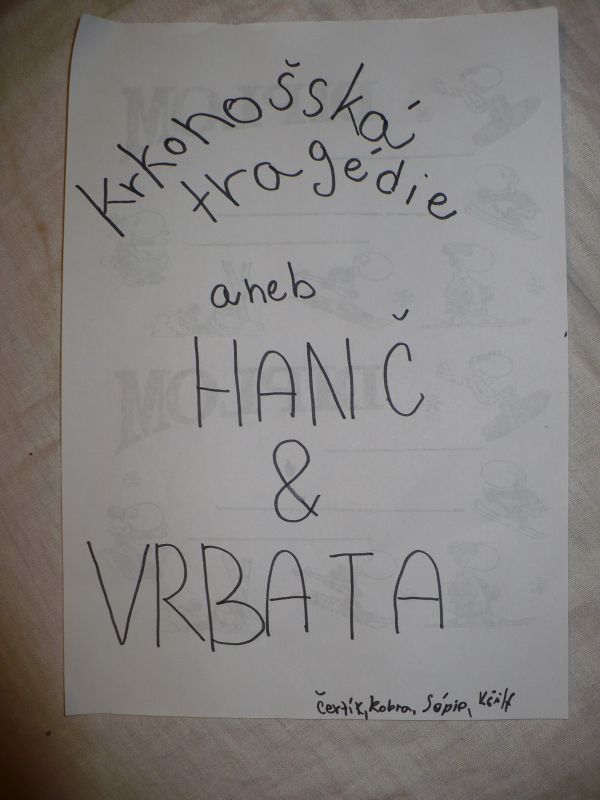 Krkonošská
tragédie
aneb
HANČ
&
VRBATA
čertík, kobra, Sépie,